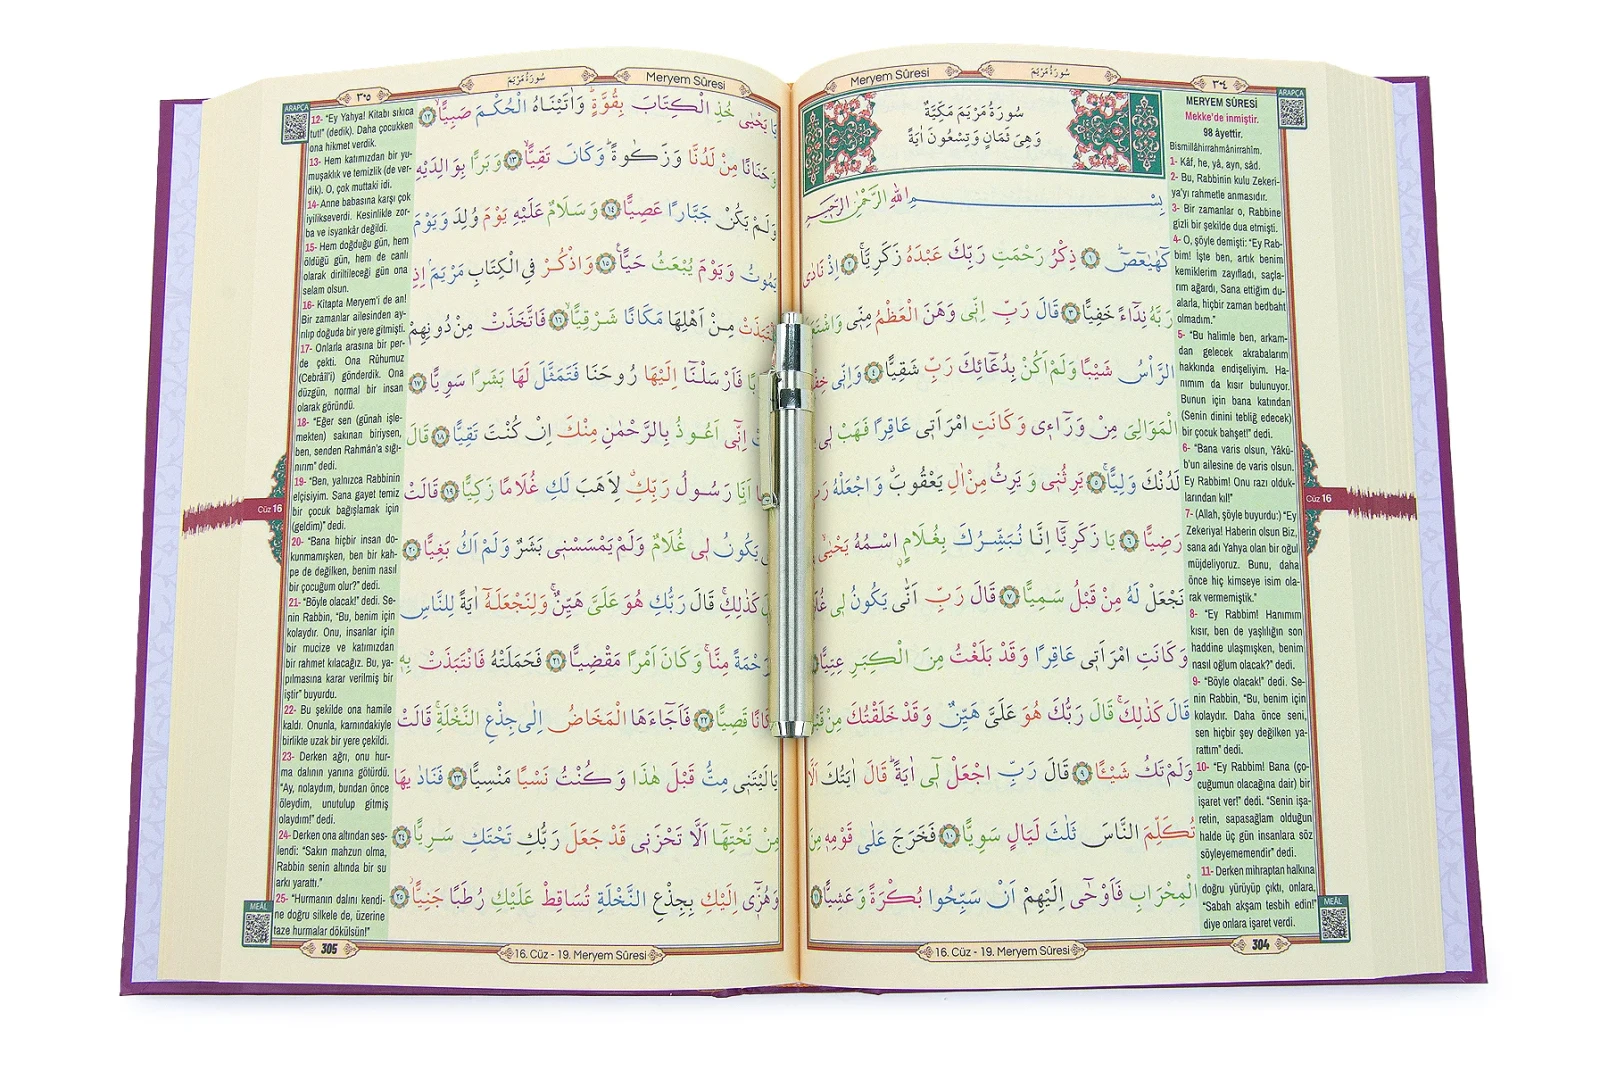 Meryem Sûresi
سُورَةُ مَرْيَمَ
٣٠٤
ARAPÇA
سُورَةُ مَرْيَمَ مَكِّيَّةٌ
وَهِيَ ثَمَانٍ وَتِسْعُونَ اٰيَةً
بِسْمِ اللّٰهِ الرَّحْمٰنِ الرَّحِيمِ
كٓهٰيٰعٓصٓ ﴿١﴾ ذِكْرُ رَحْمَتِ رَبِّكَ عَبْدَهُ زَكَرِيَّا ﴿٢﴾ اِذْ نَادٰى
رَبَّهُ نِدَٓاءً خَفِيًّا ﴿٣﴾ قَالَ رَبِّ اِنّ۪ي وَهَنَ الْعَظْمُ مِنّ۪ي
الرَّأْسُ شَيْبًا وَلَمْ اَكُنْ بِدُعَٓائِكَ رَبِّ شَقِيًّا ﴿٤﴾ وَاِنّ۪ي
الْمَوَالِيَ مِنْ وَرَٓاء۪ي وَكَانَتِ امْرَاَت۪ي عَاقِرًا فَهَبْ ل۪ي
لَدُنْكَ وَلِيًّا ﴿٥﴾ يَرِثُن۪ي وَيَرِثُ مِنْ اٰلِ يَعْقُوبَ وَاجْعَلْهُ
رَضِيًّا ﴿٦﴾ يَا زَكَرِيَّٓا اِنَّا نُبَشِّرُكَ بِغُلَامٍ اسْمُهُ يَحْيٰى
نَجْعَلْ لَهُ مِنْ قَبْلُ سَمِيًّا ﴿٧﴾ قَالَ رَبِّ اَنّٰى يَكُونُ ل۪ي
وَكَانَتِ امْرَاَت۪ي عَاقِرًا وَقَدْ بَلَغْتُ مِنَ الْكِبَرِ عِتِيًّا
قَالَ كَذٰلِكَ قَالَ رَبُّكَ هُوَ عَلَيَّ هَيِّنٌ وَقَدْ خَلَقْتُكَ مِنْ
وَلَمْ تَكُ شَيْـًٔا ﴿٩﴾ قَالَ رَبِّ اجْعَلْ ل۪ٓي اٰيَةً قَالَ اٰيَتُكَ
تُكَلِّمَ النَّاسَ ثَلٰثَ لَيَالٍ سَوِيًّا ﴿١٠﴾ فَخَرَجَ عَلٰى قَوْمِه۪ مِنَ
الْمِحْرَابِ فَاَوْحٰٓى اِلَيْهِمْ اَنْ سَبِّحُوا بُكْرَةً وَعَشِيًّا ﴿١١﴾
MERYEM SÛRESİ
Mekke'de inmiştir.
98 âyettir.
Bismillâhirrahmânirrahîm.
1- Kâf, he, yâ, ayn, sâd.
2- Bu, Rabbinin kulu Zekeri-
ya'yı rahmetle anmasıdır.
3- Bir zamanlar o, Rabbine
gizli bir şekilde dua etmişti.
4- O, şöyle demişti: "Ey Rab-
bim! İşte ben, artık benim
kemiklerim zayıfladı, saçla-
rım ağardı, Sana ettiğim du-
alarla, hiçbir zaman bedbaht
olmadım."
5- "Bu halimle ben, arkam-
dan gelecek akrabalarım
hakkında endişeliyim. Ha-
nımım da kısır bulunuyor.
Bunun için bana katından
(Senin dinini tebliğ edecek)
bir çocuk bahşet!" dedi.
6- "Bana varis olsun, Yâkû-
b'un ailesine de varis olsun.
Ey Rabbim! Onu razı olduk-
larından kıl!"
7- (Allah, şöyle buyurdu:) "Ey
Zekeriya! Haberin olsun Biz,
sana adı Yahya olan bir oğul
müjdeliyoruz. Bunu, daha
önce hiç kimseye isim ola-
rak vermemiştik."
8- "Ey Rabbim! Hanımım
kısır, ben de yaşlılığın son
haddine ulaşmışken, benim
nasıl oğlum olacak?" dedi.
9- "Böyle olacak!" dedi. Se-
nin Rabbin, "Bu, benim için
kolaydır. Daha önce seni,
sen hiçbir şey değilken ya-
rattım" dedi.
10- "Ey Rabbim! Bana (ço-
cuğumun olacağına dair) bir
işaret ver!" dedi. "Senin işa-
retin, sapasağlam olduğun
halde üç gün insanlara söz
söyleyememendir" dedi.
11- Derken mihraptan halkına
doğru yürüyüp çıktı, onlara,
"Sabah akşam tesbih edin!"
diye onlara işaret verdi.
Cüz 16
MEÂL
16. Cüz - 19. Meryem Sûresi
304
٣٠٥
سُورَةُ مَرْيَمَ
Meryem Sûresi
ARAPÇA
يَا يَحْيٰى خُذِ الْكِتَابَ بِقُوَّةٍ وَاٰتَيْنَاهُ الْحُكْمَ صَبِيًّا ﴿١٢﴾
وَحَنَانًا مِنْ لَدُنَّا وَزَكٰوةً وَكَانَ تَقِيًّا ﴿١٣﴾ وَبَرًّا بِوَالِدَيْهِ
وَلَمْ يَكُنْ جَبَّارًا عَصِيًّا ﴿١٤﴾ وَسَلَامٌ عَلَيْهِ يَوْمَ وُلِدَ وَيَوْمَ
يَمُوتُ وَيَوْمَ يُبْعَثُ حَيًّا ﴿١٥﴾ وَاذْكُرْ فِي الْكِتَابِ مَرْيَمَ اِذِ
انْتَبَذَتْ مِنْ اَهْلِهَا مَكَانًا شَرْقِيًّا ﴿١٦﴾ فَاتَّخَذَتْ مِنْ دُونِهِمْ
فَاَرْسَلْنَٓا اِلَيْهَا رُوحَنَا فَتَمَثَّلَ لَهَا بَشَرًا سَوِيًّا ﴿١٧﴾
اِنّ۪ٓي اَعُوذُ بِالرَّحْمٰنِ مِنْكَ اِنْ كُنْتَ تَقِيًّا ﴿١٨﴾ قَالَ
اَنَا رَسُولُ رَبِّكِ لِاَهَبَ لَكِ غُلَامًا زَكِيًّا ﴿١٩﴾ قَالَتْ
يَكُونُ ل۪ي غُلَامٌ وَلَمْ يَمْسَسْن۪ي بَشَرٌ وَلَمْ اَكُ بَغِيًّا ﴿٢٠﴾
كَذٰلِكِ قَالَ رَبُّكِ هُوَ عَلَيَّ هَيِّنٌ وَلِنَجْعَلَهُٓ اٰيَةً لِلنَّاسِ
وَرَحْمَةً مِنَّا وَكَانَ اَمْرًا مَقْضِيًّا ﴿٢١﴾ فَحَمَلَتْهُ فَانْتَبَذَتْ بِه۪
مَكَانًا قَصِيًّا ﴿٢٢﴾ فَاَجَٓاءَهَا الْمَخَاضُ اِلٰى جِذْعِ النَّخْلَةِ قَالَتْ
يَا لَيْتَن۪ي مِتُّ قَبْلَ هٰذَا وَكُنْتُ نَسْيًا مَنْسِيًّا ﴿٢٣﴾ فَنَادٰيهَا
مِنْ تَحْتِهَٓا اَلَّا تَحْزَن۪ي قَدْ جَعَلَ رَبُّكِ تَحْتَكِ سَرِيًّا ﴿٢٤﴾
وَهُزّ۪ٓي اِلَيْكِ بِجِذْعِ النَّخْلَةِ تُسَاقِطْ عَلَيْكِ رُطَبًا جَنِيًّا ﴿٢٥﴾
12- "Ey Yahya! Kitabı sıkıca
tut!" (dedik). Daha çocukken
ona hikmet verdik.
13- Hem katımızdan bir yu-
muşaklık ve temizlik (de ver-
dik). O, çok muttaki idi.
14- Anne babasına karşı çok
iyilikseverdi. Kesinlikle zor-
ba ve isyankâr değildi.
15- Hem doğduğu gün, hem
öldüğü gün, hem de canlı
olarak diriltileceği gün ona
selam olsun.
16- Kitapta Meryem'i de an!
Bir zamanlar ailesinden ay-
rılıp doğuda bir yere gitmişti.
17- Onlarla arasına bir per-
de çekti. Ona Rûhumuz
(Cebrâîl'i) gönderdik. Ona
düzgün, normal bir insan
olarak göründü.
18- "Eğer sen (günah işle-
mekten) sakınan biriysen,
ben, senden Rahmân'a sığı-
nırım" dedi.
19- "Ben, yalnızca Rabbinin
elçisiyim. Sana gayet temiz
bir çocuk bağışlamak için
(geldim)" dedi.
20- "Bana hiçbir insan do-
kunmamışken, ben bir kah-
pe de değilken, benim nasıl
bir çocuğum olur?" dedi.
21- "Böyle olacak!" dedi. Se-
nin Rabbin, "Bu, benim için
kolaydır. Onu, insanlar için
bir mucize ve katımızdan
bir rahmet kılacağız. Bu, ya-
pılmasına karar verilmiş bir
iştir" buyurdu.
22- Bu şekilde ona hamile
kaldı. Onunla, karnındakiyle
birlikte uzak bir yere çekildi.
23- Derken ağrı, onu hur-
ma dalının yanına götürdü.
"Ay, nolaydım, bundan önce
öleydim, unutulup gitmiş
olaydım!" dedi.
24- Derken ona altından ses-
lendi: "Sakın mahzun olma,
Rabbin senin altında bir su
arkı yarattı."
25- "Hurmanın dalını kendi-
ne doğru silkele de, üzerine
taze hurmalar dökülsün!"
Cüz 16
MEÂL
305
16. Cüz - 19. Meryem Sûresi